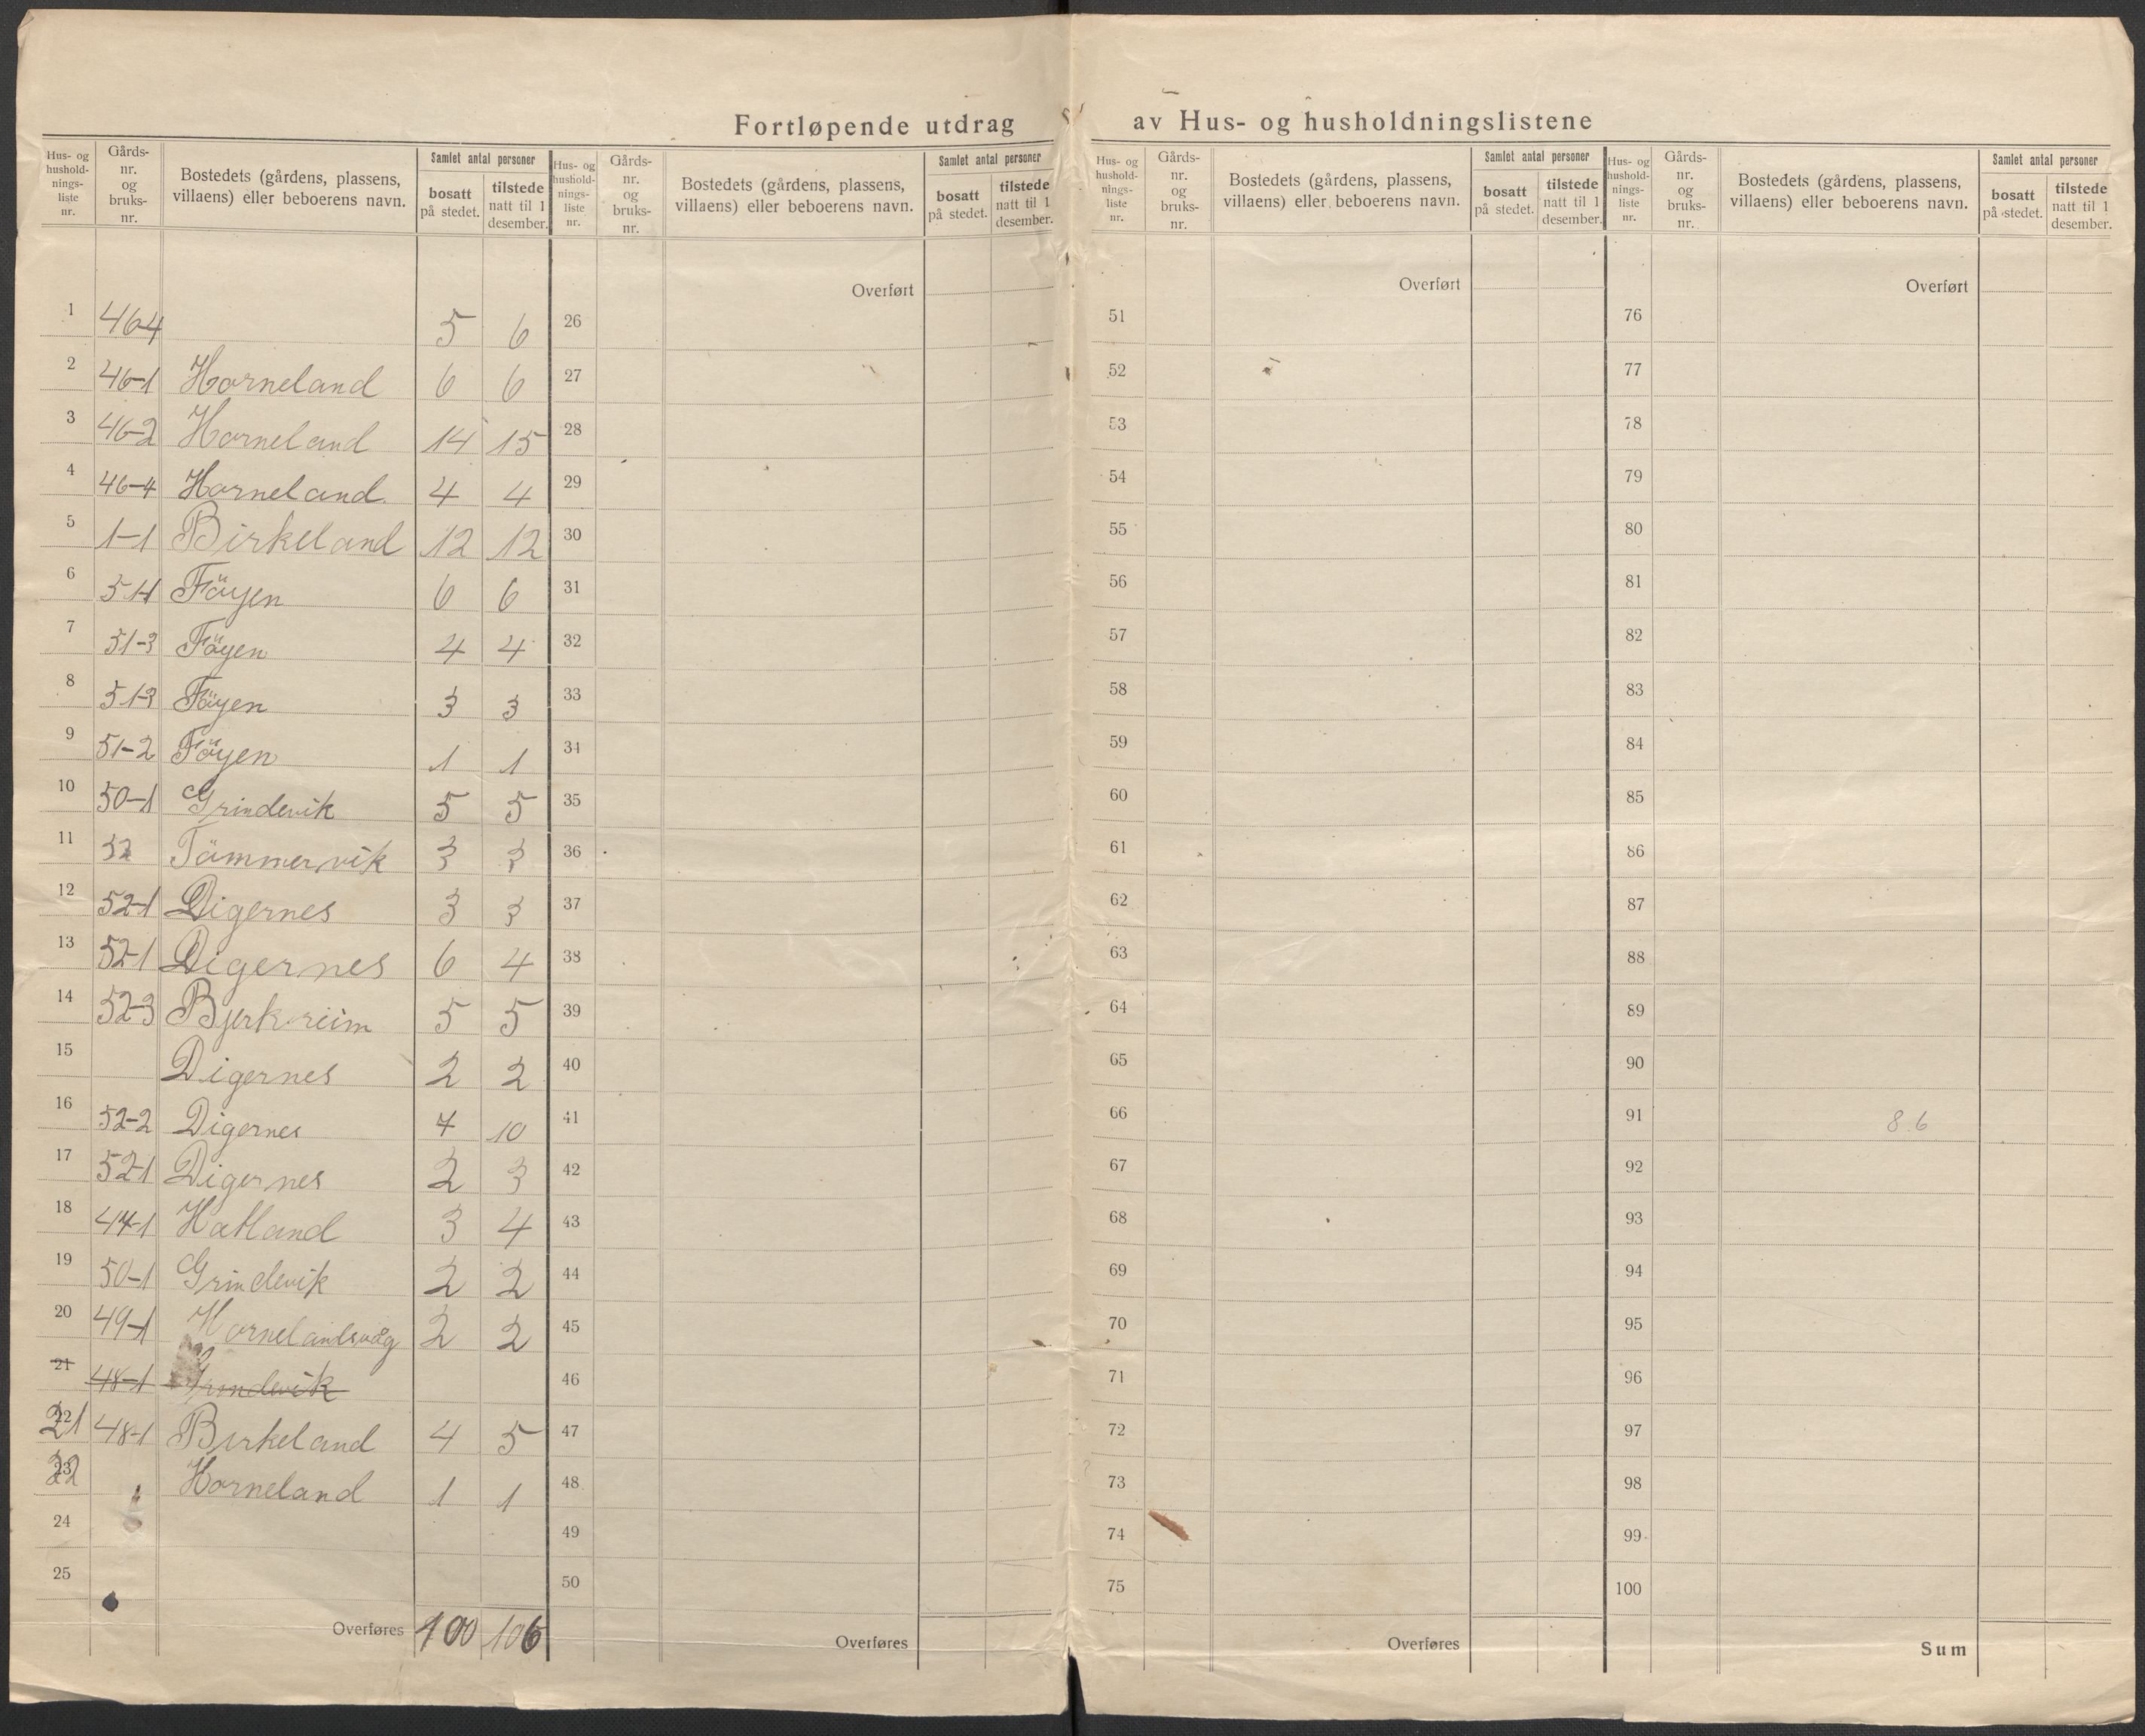 Fortløpende utdrag av Hus- og husholdningslistene
Hus- og husholdnings-liste nr. | Gårds-nr. og bruks-nr. | Bostedets (gårdens, plassens, villaens) eller beboerens navn. | Samlet antal personer | bosatt på stedet. | tilstede natt til 1 desember.
Hus- og husholdnings-liste nr. | Gårds-nr. og bruks-nr. | Bostedets (gårdens, plassens, villaens) eller beboerens navn. | Samlet antal personer | bosatt på stedet. | tilstede natt til 1 desember.
Hus- og husholdnings-liste nr. | Gårds-nr. og bruks-nr. | Bostedets (gårdens, plassens, villaens) eller beboerens navn. | Samlet antal personer | bosatt på stedet. | tilstede natt til 1 desember.
Hus- og husholdnings-liste nr. | Gårds-nr. og bruks-nr. | Bostedets (gårdens, plassens, villaens) eller beboerens navn. | Samlet antal personer | bosatt på stedet. | tilstede natt til 1 desember.
1 46-4 5 6
2 46-1 Horneland 6 6
3 46-2 Horneland 14 15
4 46-4 Horneland 4 4
5 1-1 Birkeland 12 12
6 51-1 Föyen 6 6
7 51-3 Föyen 4 4
8 51-3 Föyen 3 3
9 51-2 Föyen 1 1
10 50-1 Grindevik 5 5
11 Tömmervik 3 3
12 52-1 Digernes 3 3
13 52-1 Digernes 6 4
14 52-3 Bjerkreim 5 5
15 Digernes 2 2
16 52-2 Digernes 10
17 52-1 Digernes 2 3
18 47-1 Hatland 3 4
19 50-1 Grindevik 2 2
20 49-1 Hornelandsvåg 2 2
21 48-1 Grindevik
22 21 48-1 Birkeland 4 5
23 22 Horneland 1 1
24
25
Overføres 100 106
Overført
26
27
28
29
30
31
32
33
34
35
36
37
38
39
40
41
42
43
44
45
46
47
48
49
50
Overføres
Overført
51
52
53
54
55
56
57
58
59
60
61
62
63
64
65
66
67
68
69
70
71
72
73
74
75
Overføres
Overført
76
77
78
79
80
81
82
83
84
85
86
87
88
89
90
91 8.6
92
93
94
95
96
97
98
99
100
Sum